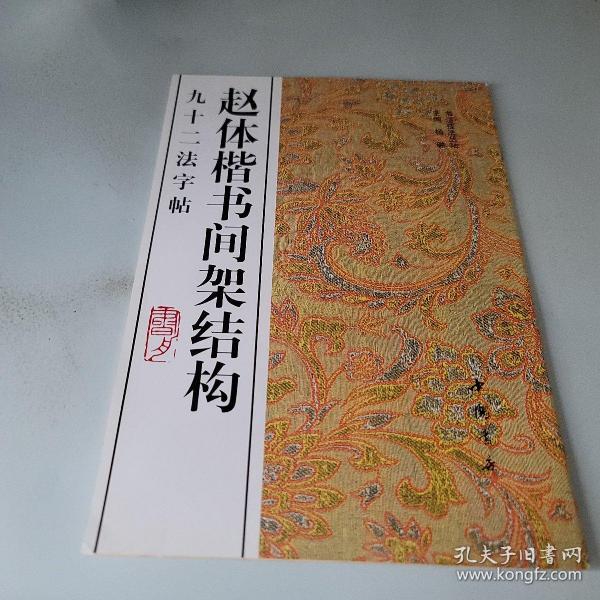 赵体楷书间架结构
九十二法字帖
中国书店
孔夫子旧书网
www.kongfz.com